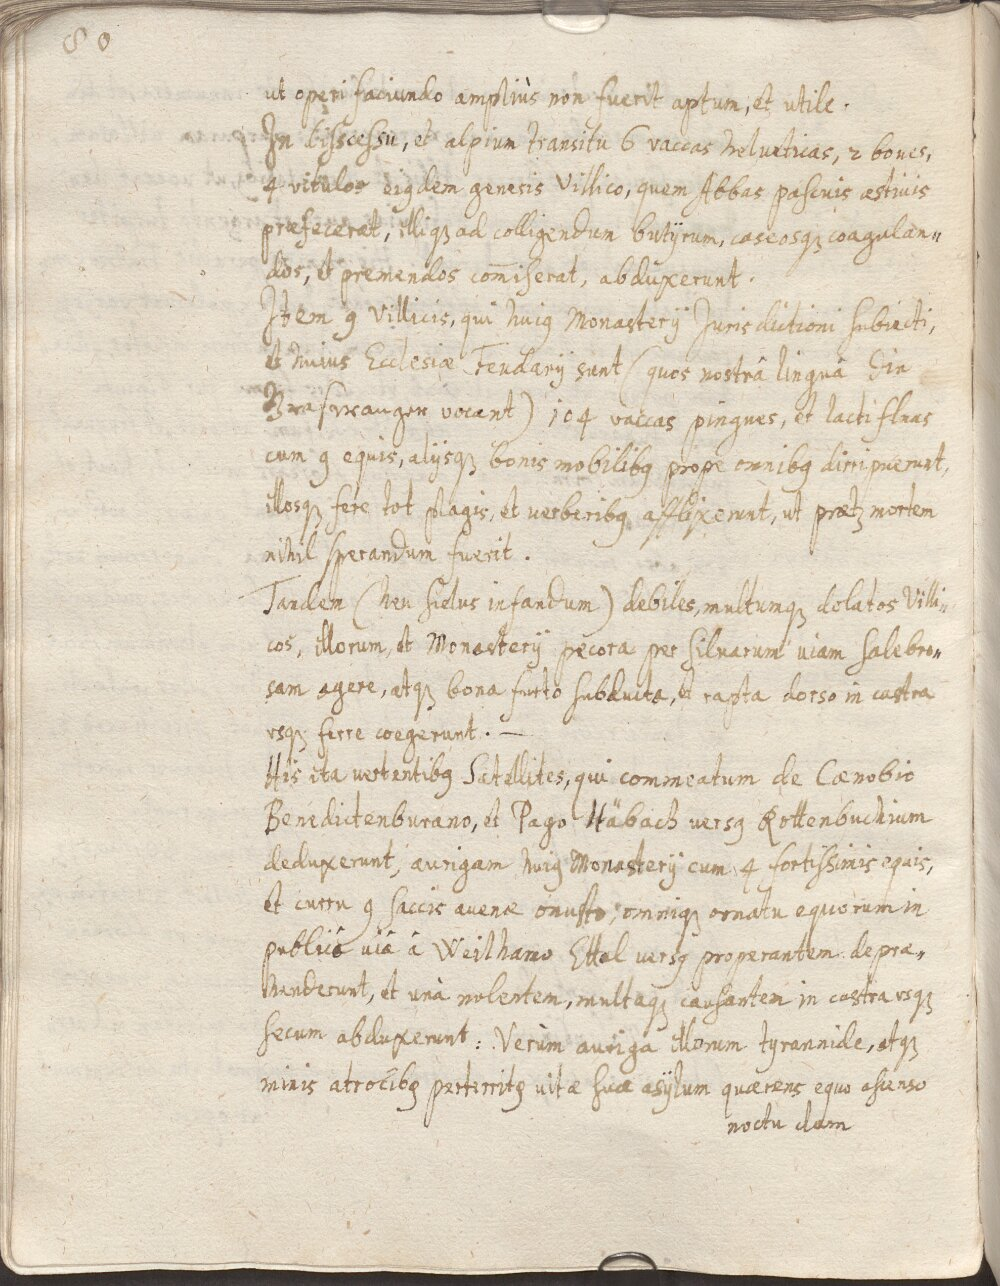 80
ut operi faciundo ampliùs non fuerit aptum, et utile.
In discessu, et alpium transitu 6 vaccas helueticas, 2 boues,
4 vitulos eiꝰdem generis Villico, quem Abbas pascuis æstiuis
præfecerat, illiqꝫ ad colligendum butÿrum, caseosqꝫ coagulan„
dos, et premendos com̄iserat, abduxerunt.
Item 9 Villicis, qui huiꝰ Monasterÿ Jurisdictioni subiecti,
et huius Ecclesiæ Feudarÿ sunt (quos nostrâ linguâ die
vocant) 104 vaccas pingues, et lactifluas
cum 9 equis, alÿsqꝫ bonis mobilibꝰ prope omnibꝰ diripuerunt,
illosqꝫ fere tot plagis, et uerberibꝰ afflixerunt, ut prætꝫ mortem
nihil sperandum fuerit.
Tandem (heu scelus infandum) debiles, multumqꝫ dolatos Villi„
cos, illorum, et Monasterÿ pecora per siluarum uiam salebro„
sam agere, atqꝫ bona furto subducta, et rapta dorso in castra
vsqꝫ ferre coegerunt. —
His ita uertentibꝰ Satellites, qui commeatum de Cænobio
Benedictenburano, et Pago Häbach versꝰ Rottenbuchium
deduxerunt, aurigam huiꝰ Monasterÿ cum 4 fortissimis equis,
et curru 9 saccis auenæ onusto, omniqꝫ ornatu equorum in
publicâ uiâ â Weilhamo Ettal versꝰ properantem depræ„
henderunt, et unà nolentem, multaqꝫ causantem in castra vsqꝫ
secum abduxerunt: Verùm auriga illorum tyrannide, atqꝫ
minis atrocibꝰ perterritꝰ uitæ suæ asÿlum quærens equo ascenso
noctu clam